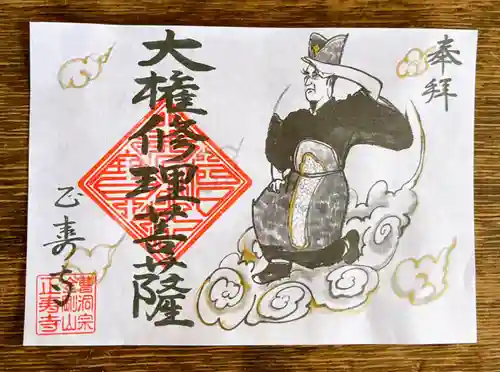 奉拝
大権修理菩薩
正寿寺
曹洞宗
正寿寺